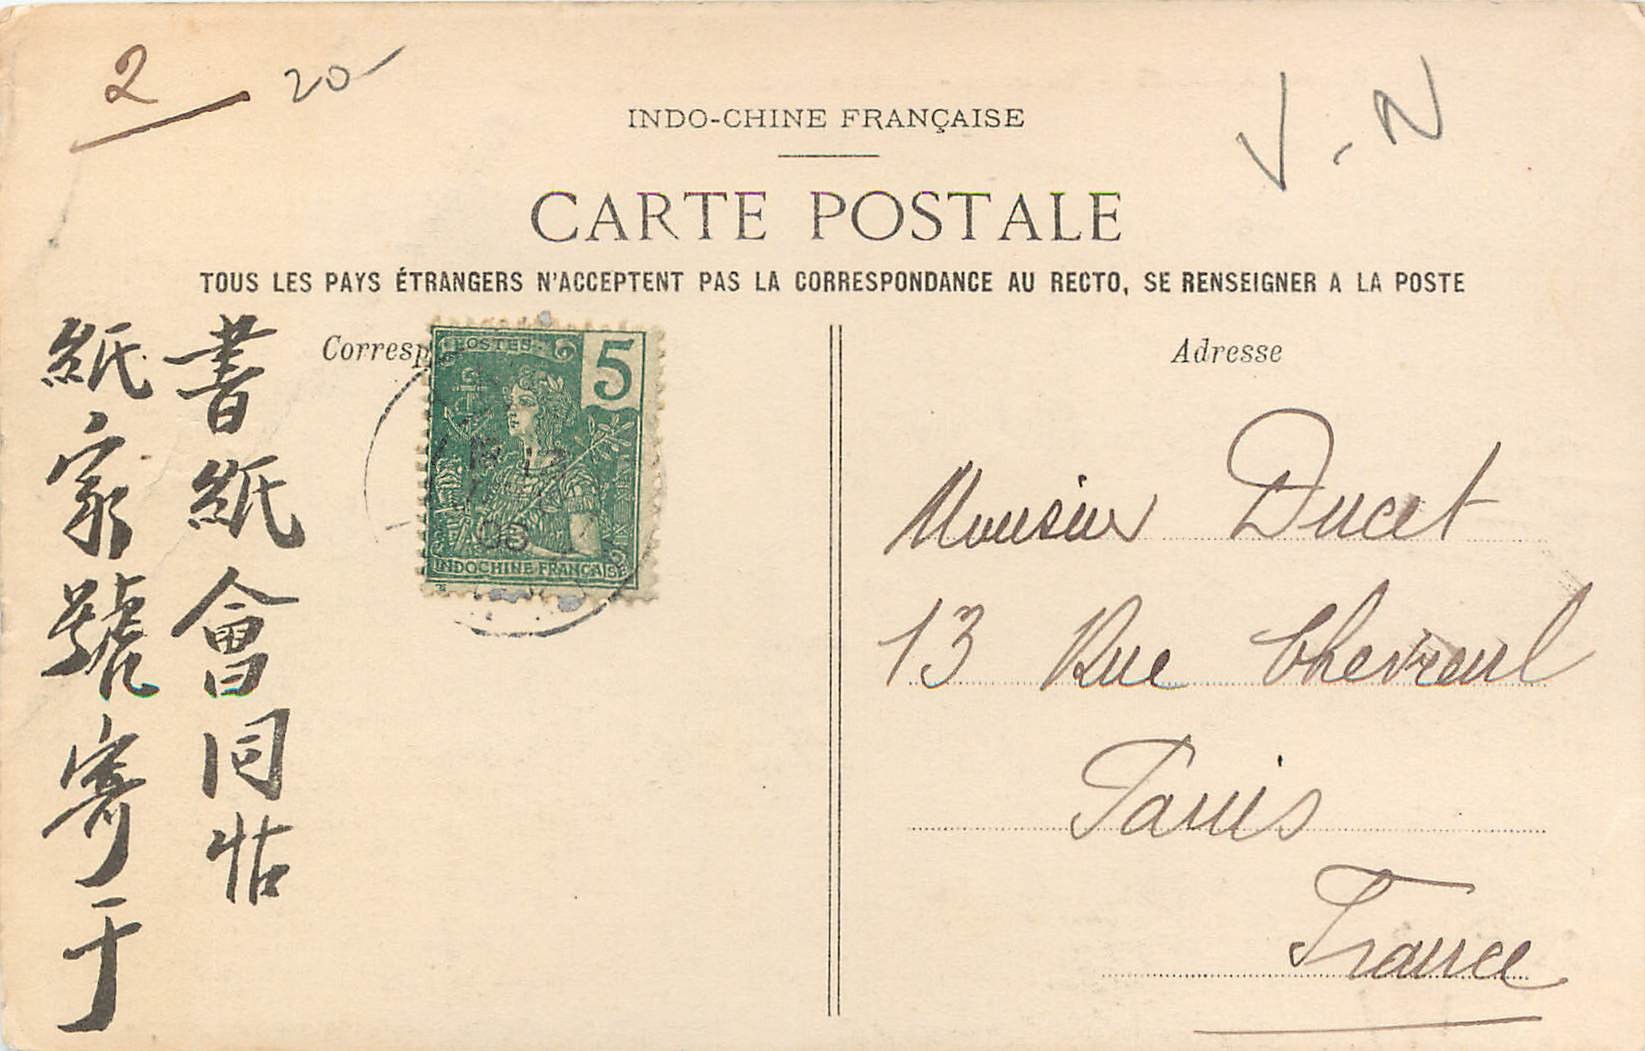 2 20
V-N
INDO-CHINE FRANÇAISE
CARTE POSTALE
TOUS LES PAYS ÉTRANGERS N'ACCEPTENT PAS LA CORRESPONDANCE AU RECTO, SE RENSEIGNER A LA POSTE
Corresp
POSTES
5
INDOCHINE FRANÇAISE
書紙會同帖
紙家號寄于
Adresse
Monsieur Ducet
13 Rue Chevreul
Paris
France